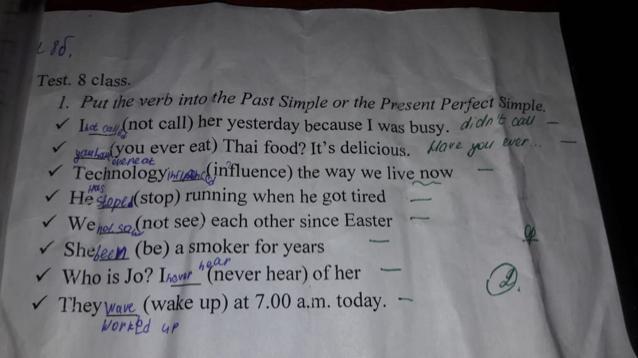 8б.
Test. 8 class.
1. Put the verb into the Past Simple or the Present Perfect Simple.
✓ I not call (not call) her yesterday because I was busy. didn't call —
✓ (you ever eat) Thai food? It's delicious. Have you ever... —
ever eat
✓ Technology (influence) the way we live now —
has
✓ He stoped (stop) running when he got tired —
✓ We not saw (not see) each other since Easter —
✓ She been (be) a smoker for years —
✓ Who is Jo? I hear (never hear) of her —
✓ They wave (wake up) at 7.00 a.m. today. —
worked up
2.